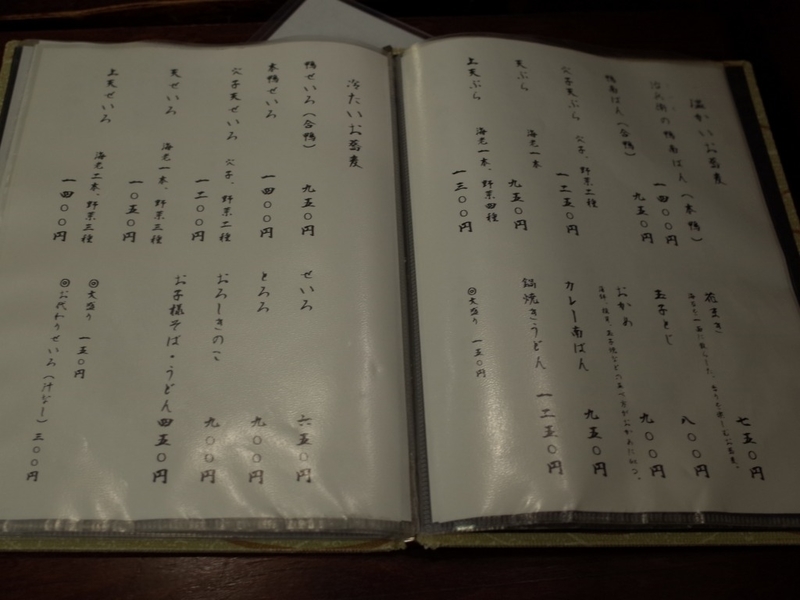 温かいお蕎麦
の鴨南ばん（本鴨） 一四〇〇円
鴨南ばん（合鴨） 九五〇円
穴子天ぷら 穴子、野菜二種 一二五〇円
天ぷら 海老一本 九五〇円
上天ぷら 海老一本、野菜四種 一三〇〇円
花まき 七五〇円
玉子とじ 八〇〇円
おかめ 九〇〇円
カレー南ばん 九五〇円
鍋焼きうどん 一二五〇円
◎大盛り 一五〇円
冷たいお蕎麦
鴨せいろ（合鴨） 九五〇円
本鴨せいろ 一四〇〇円
穴子天せいろ 穴子、野菜二種 一二〇〇円
天せいろ 海老一本、野菜三種 一〇五〇円
上天せいろ 海老二本、野菜三種 一四〇〇円
せいろ 六五〇円
とろろ 九〇〇円
おろしきのこ 九〇〇円
お子様そば・うどん 四五〇円
◎大盛り 一五〇円
◎お代わりせいろ（汁なし） 三〇〇円